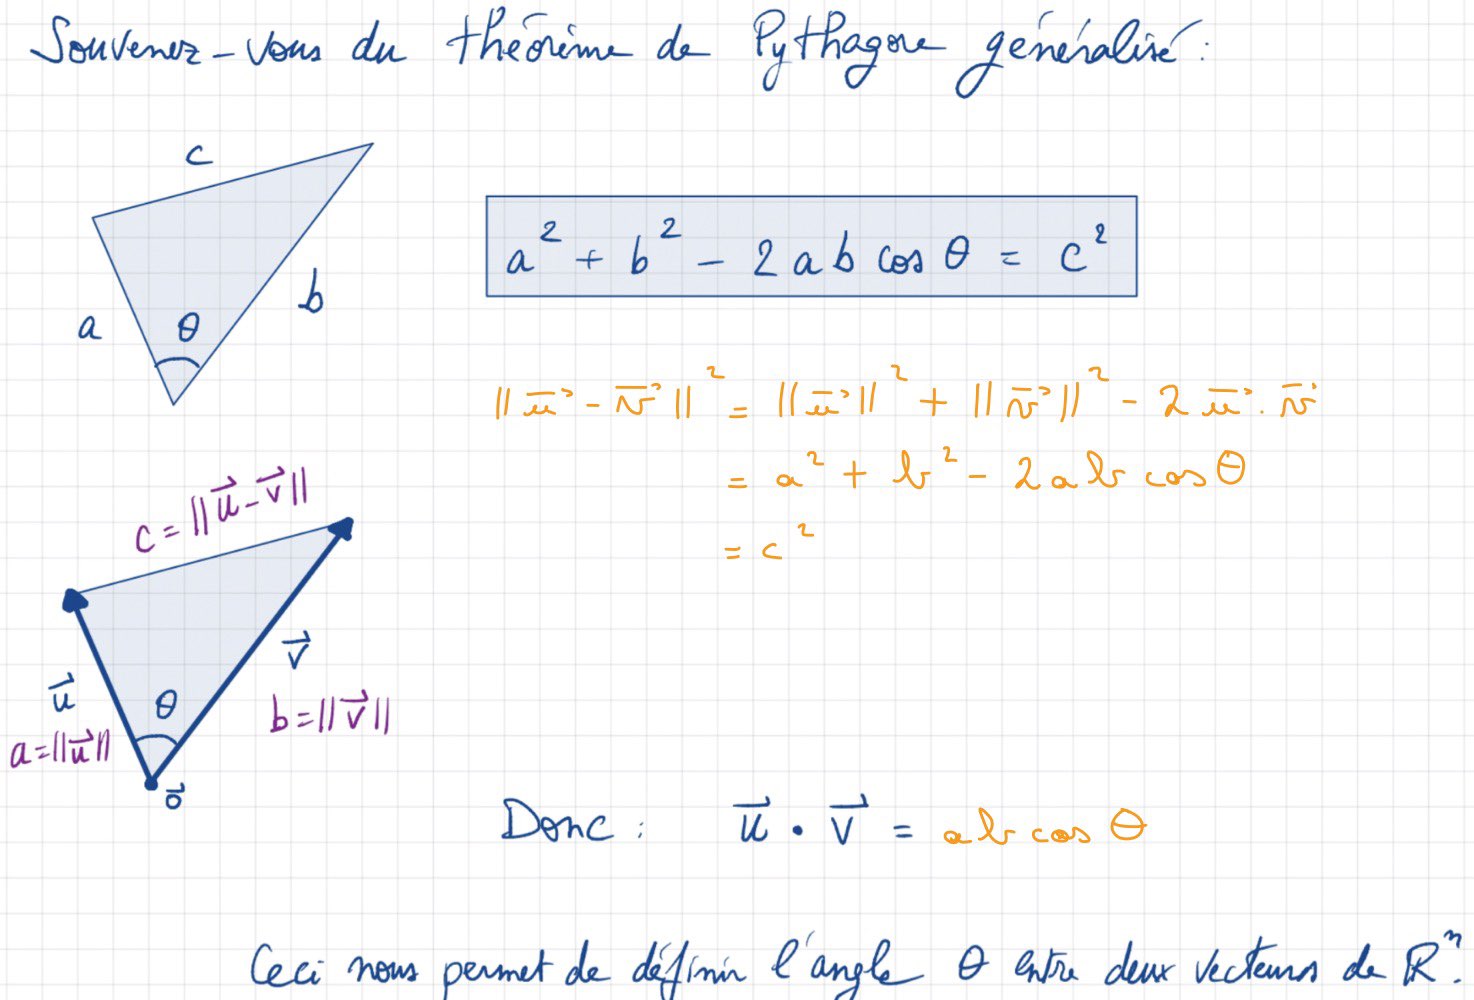 Souvenez-vous du théorème de Pythagore généralisé :
c
a² + b² - 2ab cos θ = c²
b
a
θ
||u⃗ - v⃗||² = ||u⃗||² + ||v⃗||² - 2 u⃗ . v⃗
= a² + b² - 2ab cos θ
= c²
c = ||u⃗ - v⃗||
v⃗
u⃗
θ
b = ||v⃗||
a = ||u⃗||
0⃗
Donc : u⃗ • v⃗ = ab cos θ
Ceci nous permet de définir l'angle θ entre deux vecteurs de ℝⁿ.